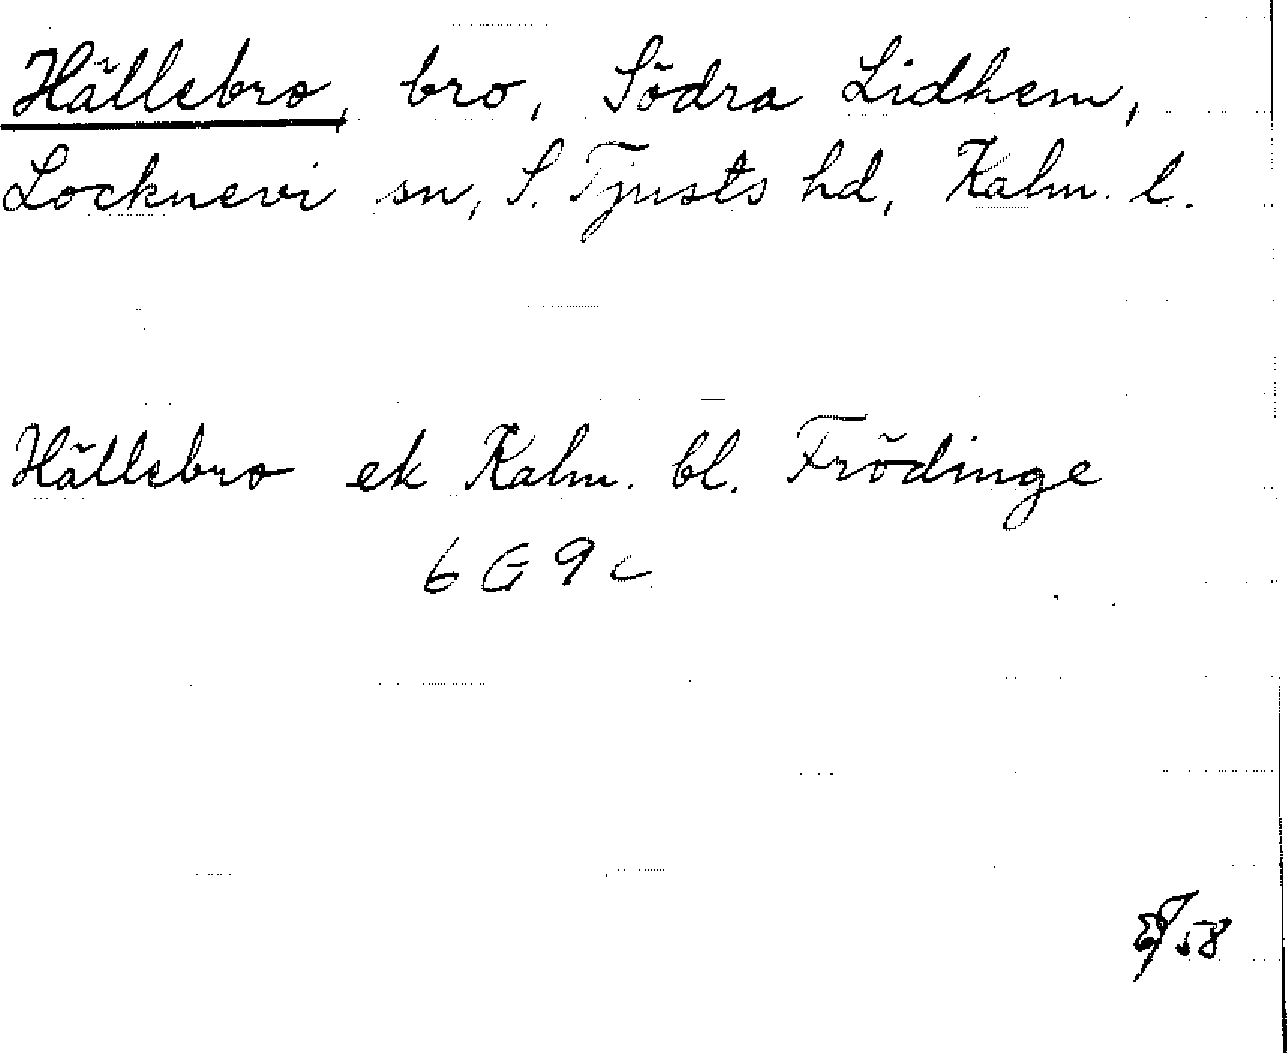 Hällebro, bro, Södra Lidhem,
Locknevi sn, S. Tjusts hd, Kalm. l.
Hällebro ek Kalm. bl. Frödinge
6 G 9 c